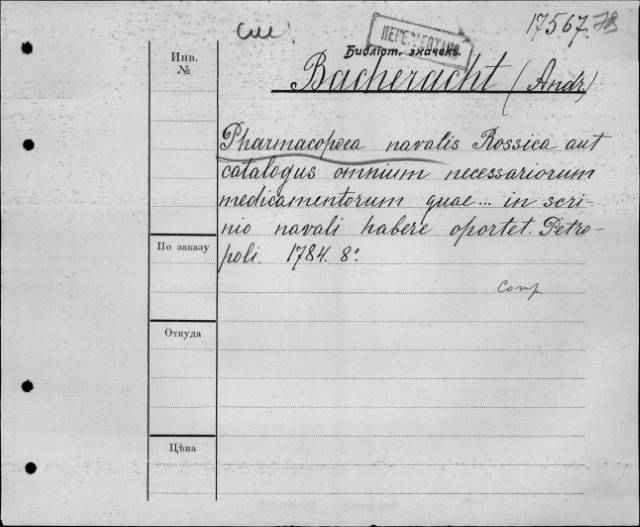 См.
17567.
ПЕРЕРАБОТАНО
Библіот. значекъ.
Инв.
№
Bacheracht (Andr.)
Pharmacopoea navalis Rossica aut
catalogus omnium necessariorum
medicamentorum quae... in scri-
nio navali habere oportet. Petro-
poli. 1784. 8°.
По заказу
Comp
Откуда
Цѣна